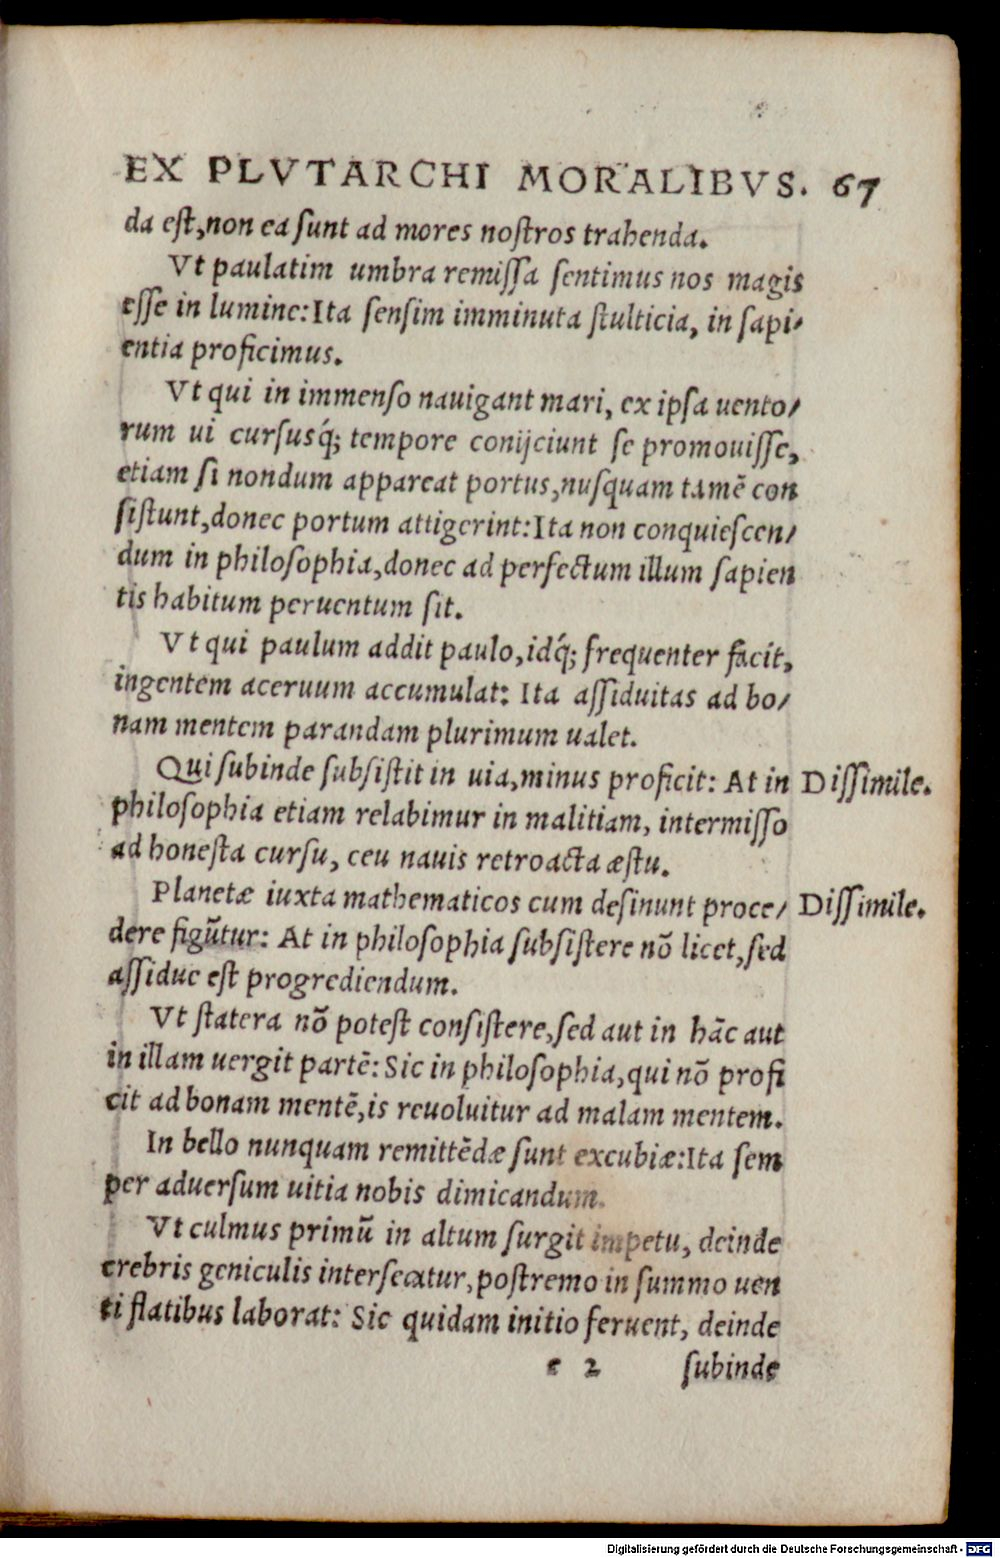 EX PLVTARCHI MORALIBVS. 67
da est, non ea sunt ad mores nostros trahenda.
Vt paulatim umbra remissa sentimus nos magis
esse in lumine: Ita sensim imminuta stulticia, in sapi/
entia proficimus.
Vt qui in immenso nauigant mari, ex ipsa uento/
rum ui cursusq́; tempore conijciunt se promouisse,
etiam si nondum appareat portus, nusquam tamē con
sistunt, donec portum attigerint: Ita non conquiescen/
dum in philosophia, donec ad perfectum illum sapien
tis habitum peruentum sit.
Vt qui paulum addit paulo, idq́; frequenter facit,
ingentem aceruum accumulat: Ita assiduitas ad bo/
nam mentem parandam plurimum ualet.
Qui subinde subsistit in uia, minus proficit: At in Dissimile.
philosophia etiam relabimur in malitiam, intermisso
ad honesta cursu, ceu nauis retroacta æstu.
Planetæ iuxta mathematicos cum desinunt proce/ Dissimile.
dere figūtur: At in philosophia subsistere nō licet, sed
assidue est progrediendum.
Vt statera nō potest consistere, sed aut in hāc aut
in illam uergit partē: Sic in philosophia, qui nō profi
cit ad bonam mentē, is reuoluitur ad malam mentem.
In bello nunquam remittēdæ sunt excubiæ: Ita sem
per aduersum uitia nobis dimicandum.
Vt culmus primū in altum surgit impetu, deinde
crebris geniculis intersecatur, postremo in summo uen
ti flatibus laborat: Sic quidam initio feruent, deinde
e 2 subinde
Digitalisierung gefördert durch die Deutsche Forschungsgemeinschaft - DFG